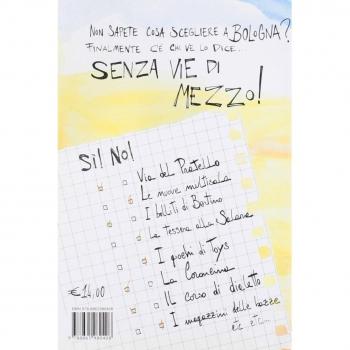 NON SAPETE COSA SCEGLIERE A BOLOGNA?
FINALMENTE C'È CHI VE LO DICE.
SENZA VIE DI
MEZZO!
SI! NO!
Via del Pratello
Le nuove multisala
I bolliti di Bertino
La tessera alla Salara
I giochi di Toys
La Coroncina
IL corso di dialetto
I magazzini delle bazze
etc. etc...
€ 14,00